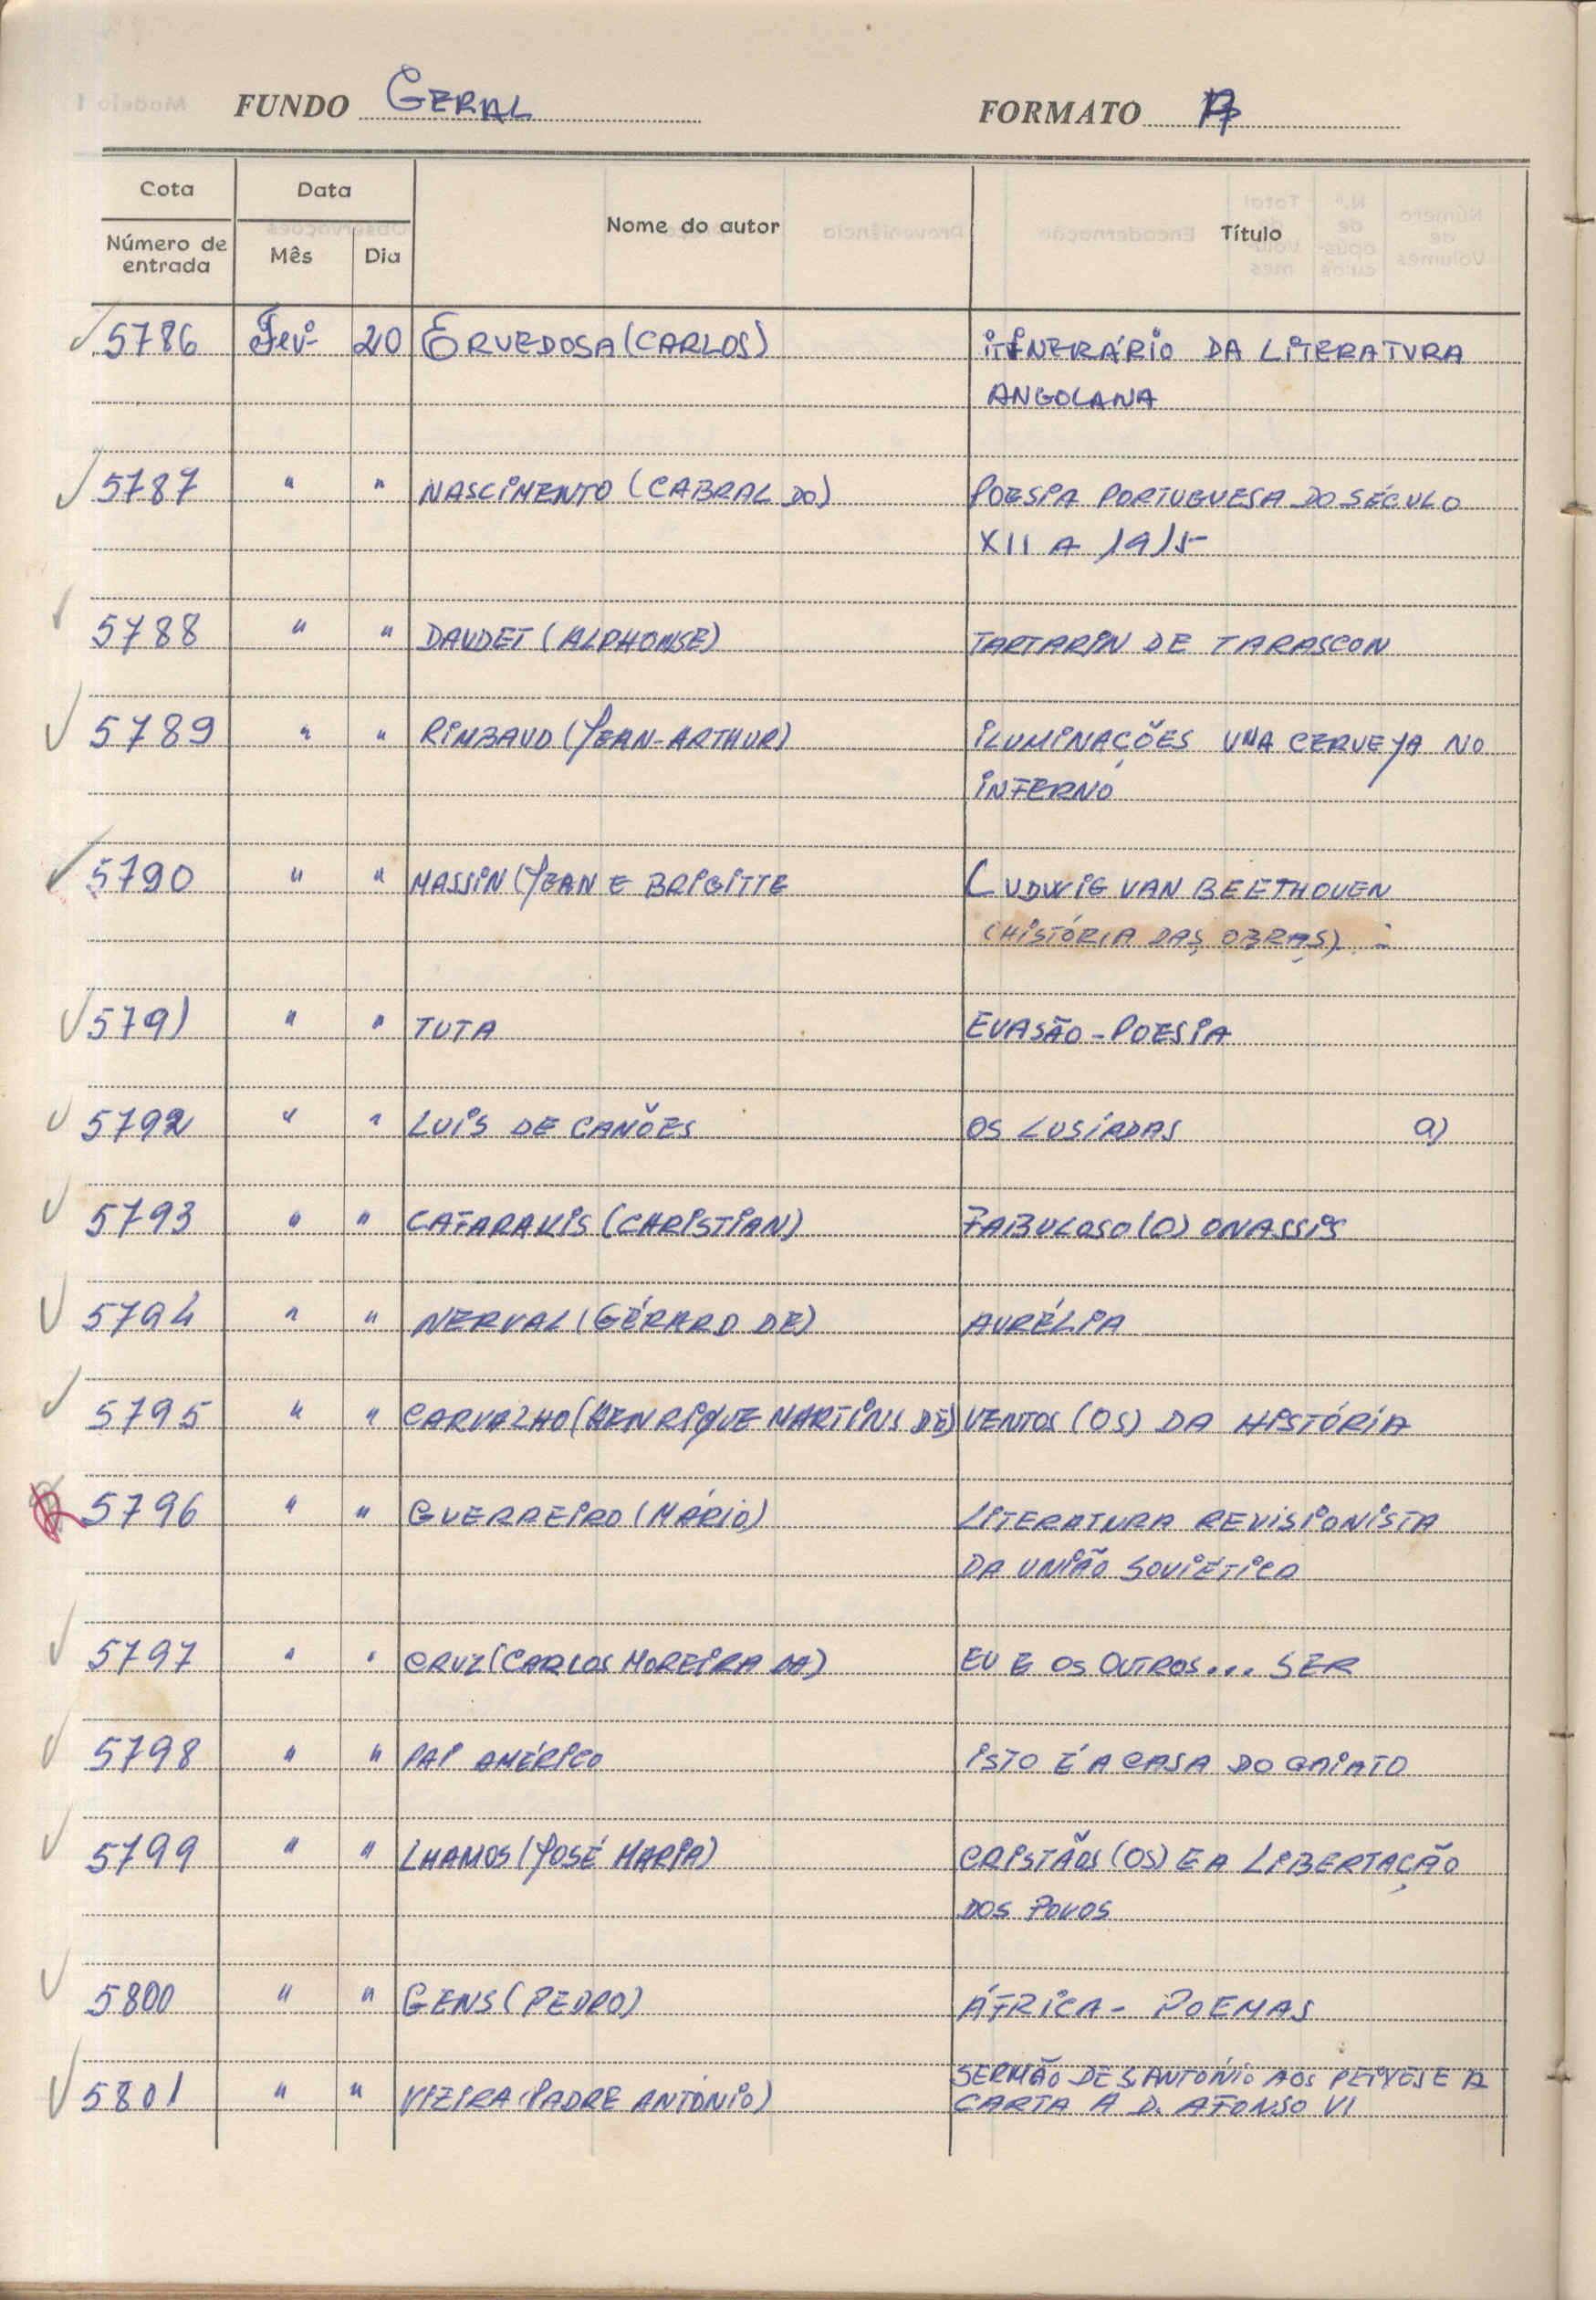 FUNDO GERAL FORMATO A
Cota Data Nome do autor Título
Número de entrada Mês Dia
5786 Fevº 20 ERVEDOSA (CARLOS) ITINERÁRIO DA LITERATURA
ANGOLANA
5787 " " NASCIMENTO (CABRAL DO) POESIA PORTUGUESA DO SÉCULO
XII A 1915
5788 " " DAUDET (ALPHONSE) TARTARIN DE TARASCON
5789 " " RIMBAUD (JEAN-ARTHUR) ILUMINAÇÕES UMA CERVEJA NO
INFERNO
5790 " " MASSIN (JEAN E BRIGITTE LUDWIG VAN BEETHOVEN
(HISTÓRIA DAS OBRAS)
5791 " " TUTA EVASÃO - POESIA
5792 " " LUIS DE CAMÕES OS LUSÍADAS a)
5793 " " CAFARAKIS (CHRISTIAN) FABULOSO (O) ONASSIS
5794 " " NERVAL (GÉRARD DE) AURÉLIA
5795 " " CARVALHO (HENRIQUE MARTINS DE) VENTOS (OS) DA HISTÓRIA
5796 " " GUERREIRO (MÁRIO) LITERATURA REVISIONISTA
DA UNIÃO SOVIÉTICA
5797 " " CRUZ (CARLOS MOREIRA DA) EU E OS OUTROS... SER
5798 " " PAI AMÉRICO ISTO É A CASA DO GAIATO
5799 " " LHAMOS (JOSÉ MARIA) CRISTÃOS (OS) E A LIBERTAÇÃO
DOS POVOS
5800 " " GENS (PEDRO) ÁFRICA - POEMAS
5801 " " VIEIRA (PADRE ANTÓNIO) SERMÃO DE S. ANTÓNIO AOS PEIXES E A
CARTA A D. AFONSO VI